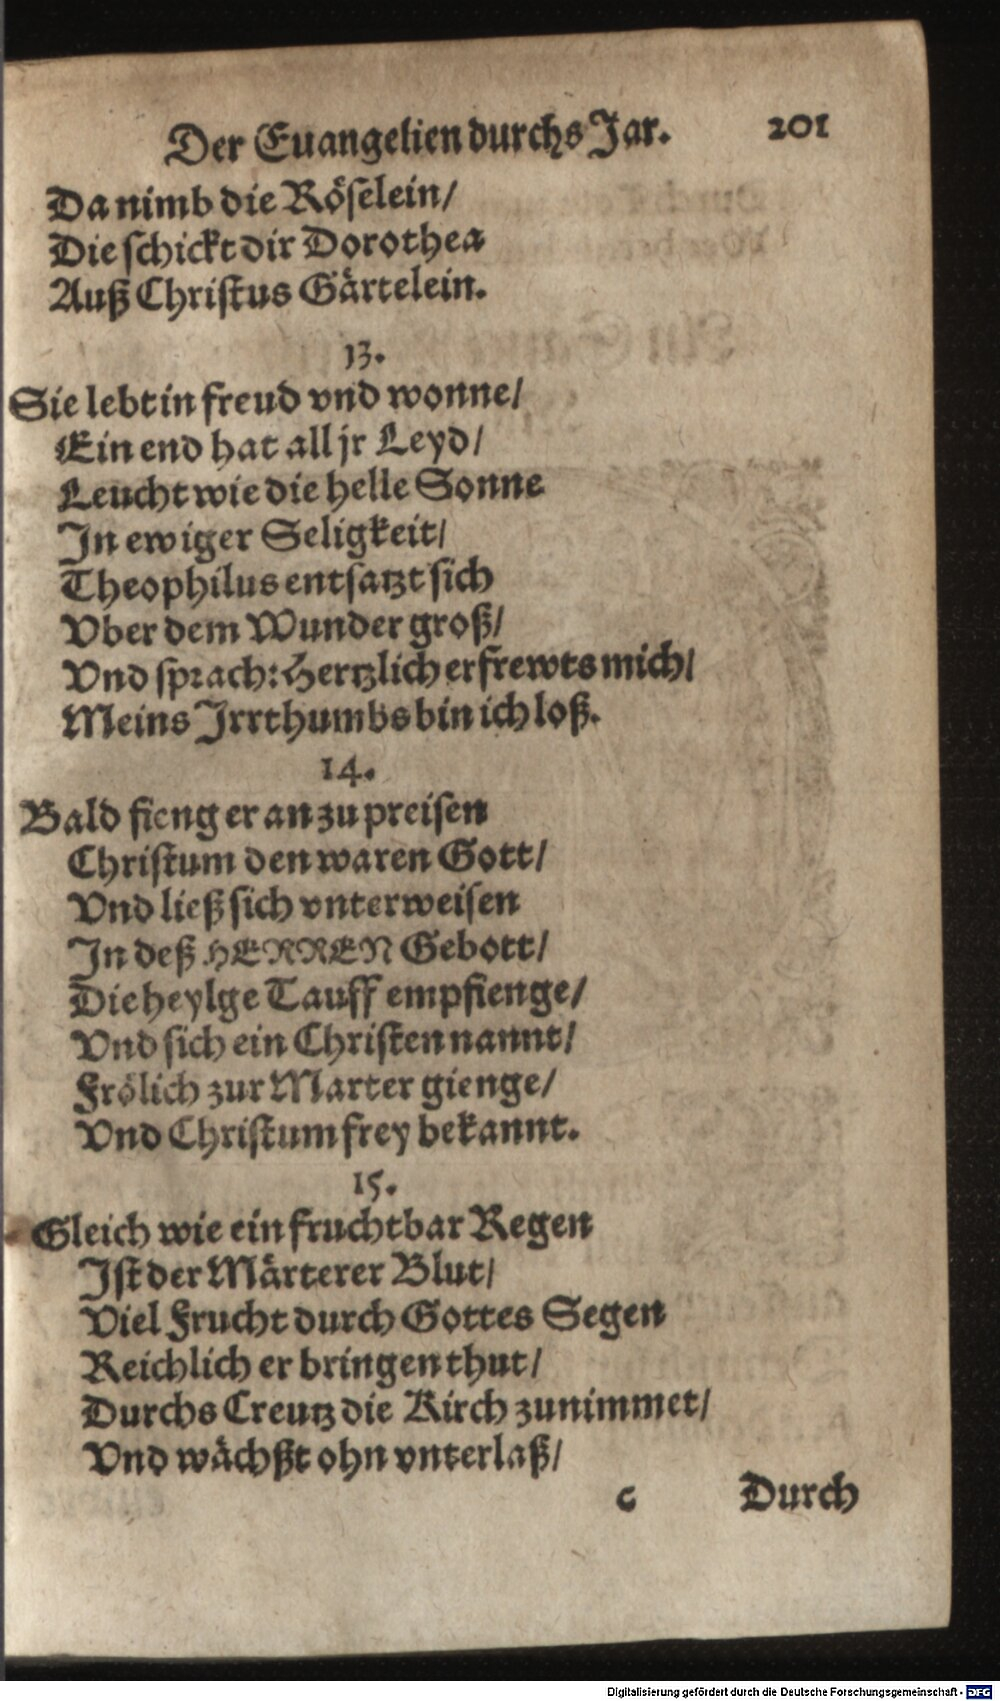 Der Euangelien durchs Jar. 201
Da nimb die Röselein/
Die schickt dir Dorothea
Auß Christus Gärtelein.
13.
Sie lebt in freud vnd wonne/
Ein end hat all jr Leyd/
Leucht wie die helle Sonne
In ewiger Seligkeit/
Theophilus entsatzt sich
Vber dem Wunder groß/
Vnd sprach: Hertzlich erfrewts mich/
Meins Irrthumbs bin ich loß.
14.
Bald fieng er an zu preisen
Christum den waren Gott/
Vnd ließ sich vnterweisen
In deß HERREN Gebott/
Die heylge Tauff empfienge/
Vnd sich ein Christen nannt/
Frölich zur Marter gienge/
Vnd Christum frey bekannt.
15.
Gleich wie ein fruchtbar Regen
Ist der Märterer Blut/
Viel Frucht durch Gottes Segen
Reichlich er bringen thut/
Durchs Creutz die Kirch zunimmet/
Vnd wächßt ohn vnterlaß/
c Durch
Digitalisierung gefördert durch die Deutsche Forschungsgemeinschaft - DFG